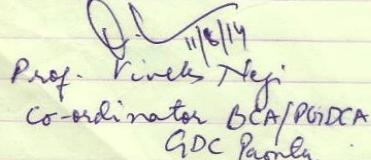 11/8/14
Prof. Vivek Negi
Co-ordinator BCA/PGDCA
GDC Paonta